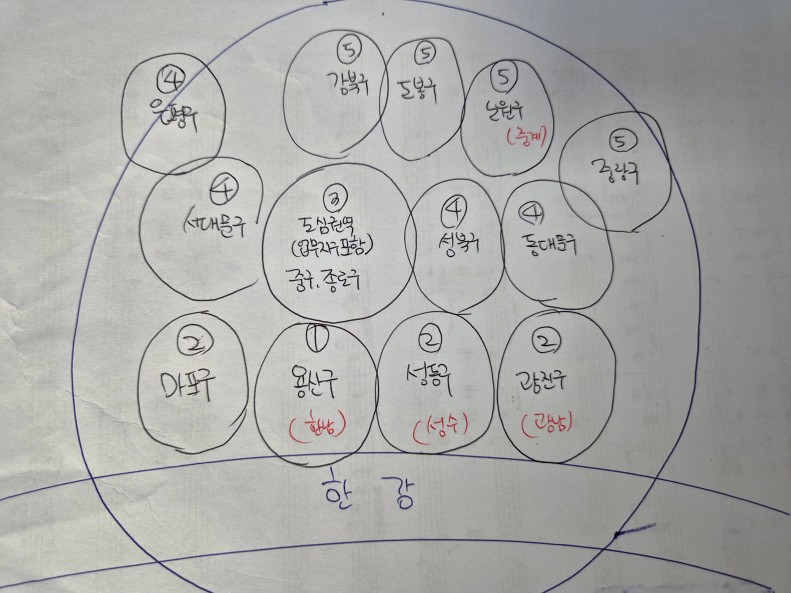 ④
은평구
⑤
강북구
⑤
도봉구
⑤
노원구
(중계)
⑤
중랑구
④
서대문구
③
도심권역
(업무지구포함)
중구, 종로구
④
성북구
④
동대문구
②
마포구
①
용산구
(한남)
②
성동구
(성수)
②
광진구
(광남)
한 강